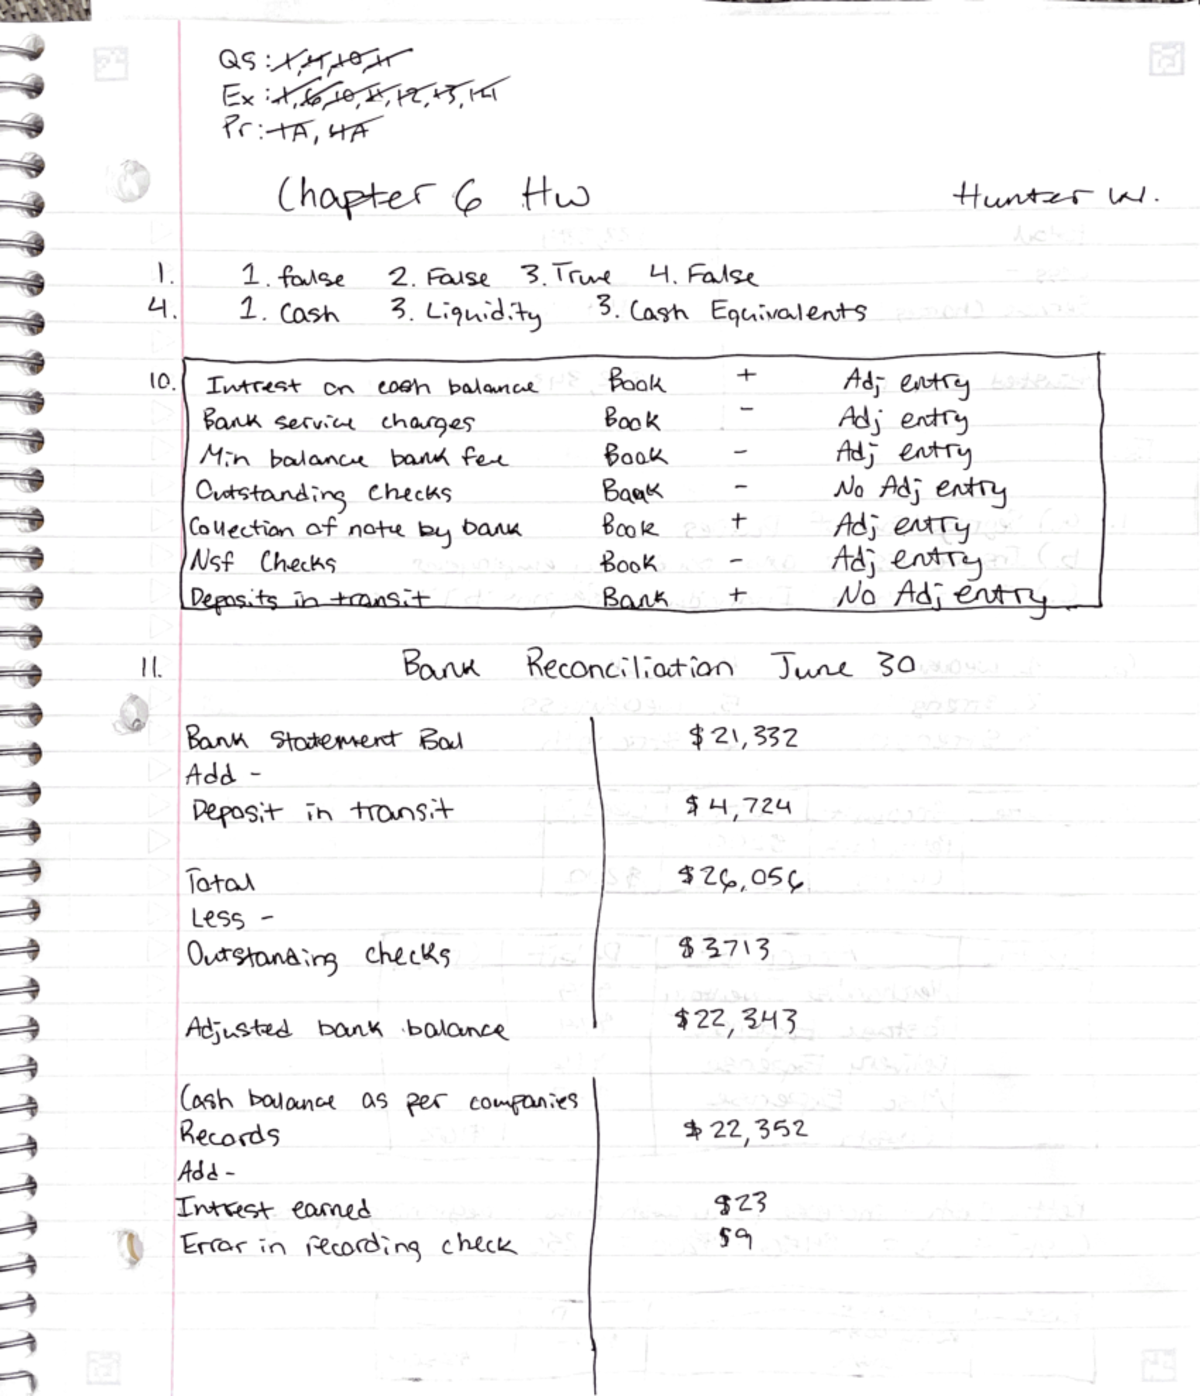 QS: 1, 4, 10, 11
Ex: 1, 6, 10, 11, 12, 13, 14
Pr: 1A, 4A
Chapter 6 Hw Hunter W.
1. 1. false 2. False 3. True 4. False
4. 1. Cash 3. Liquidity 3. Cash Equivalents
10. Intrest on cash balance Book + Adj entry
Bank service charges Book - Adj entry
Min balance bank fee Book - Adj entry
Outstanding Checks Bank - No Adj entry
Collection of note by bank Book + Adj entry
Nsf Checks Book - Adj entry
Deposits in transit Bank + No Adj entry
11. Bank Reconciliation June 30
Bank Statement Bal $21,332
Add -
Deposit in transit $4,724
Total $26,056
Less -
Outstanding checks $3713
Adjusted bank balance $22,343
Cash balance as per companies
Records $22,352
Add -
Intrest earned $23
Error in recording check $9